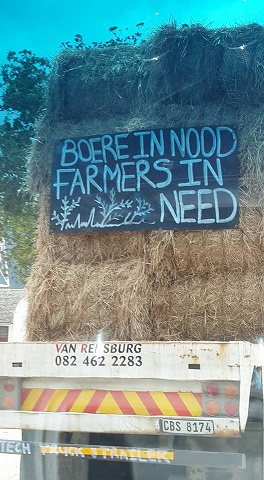 BOERE IN NOOD
FARMERS IN
NEED
VAN RENSBURG
082 462 2283
CBS 8174
TECH TRUCK & TRAILER